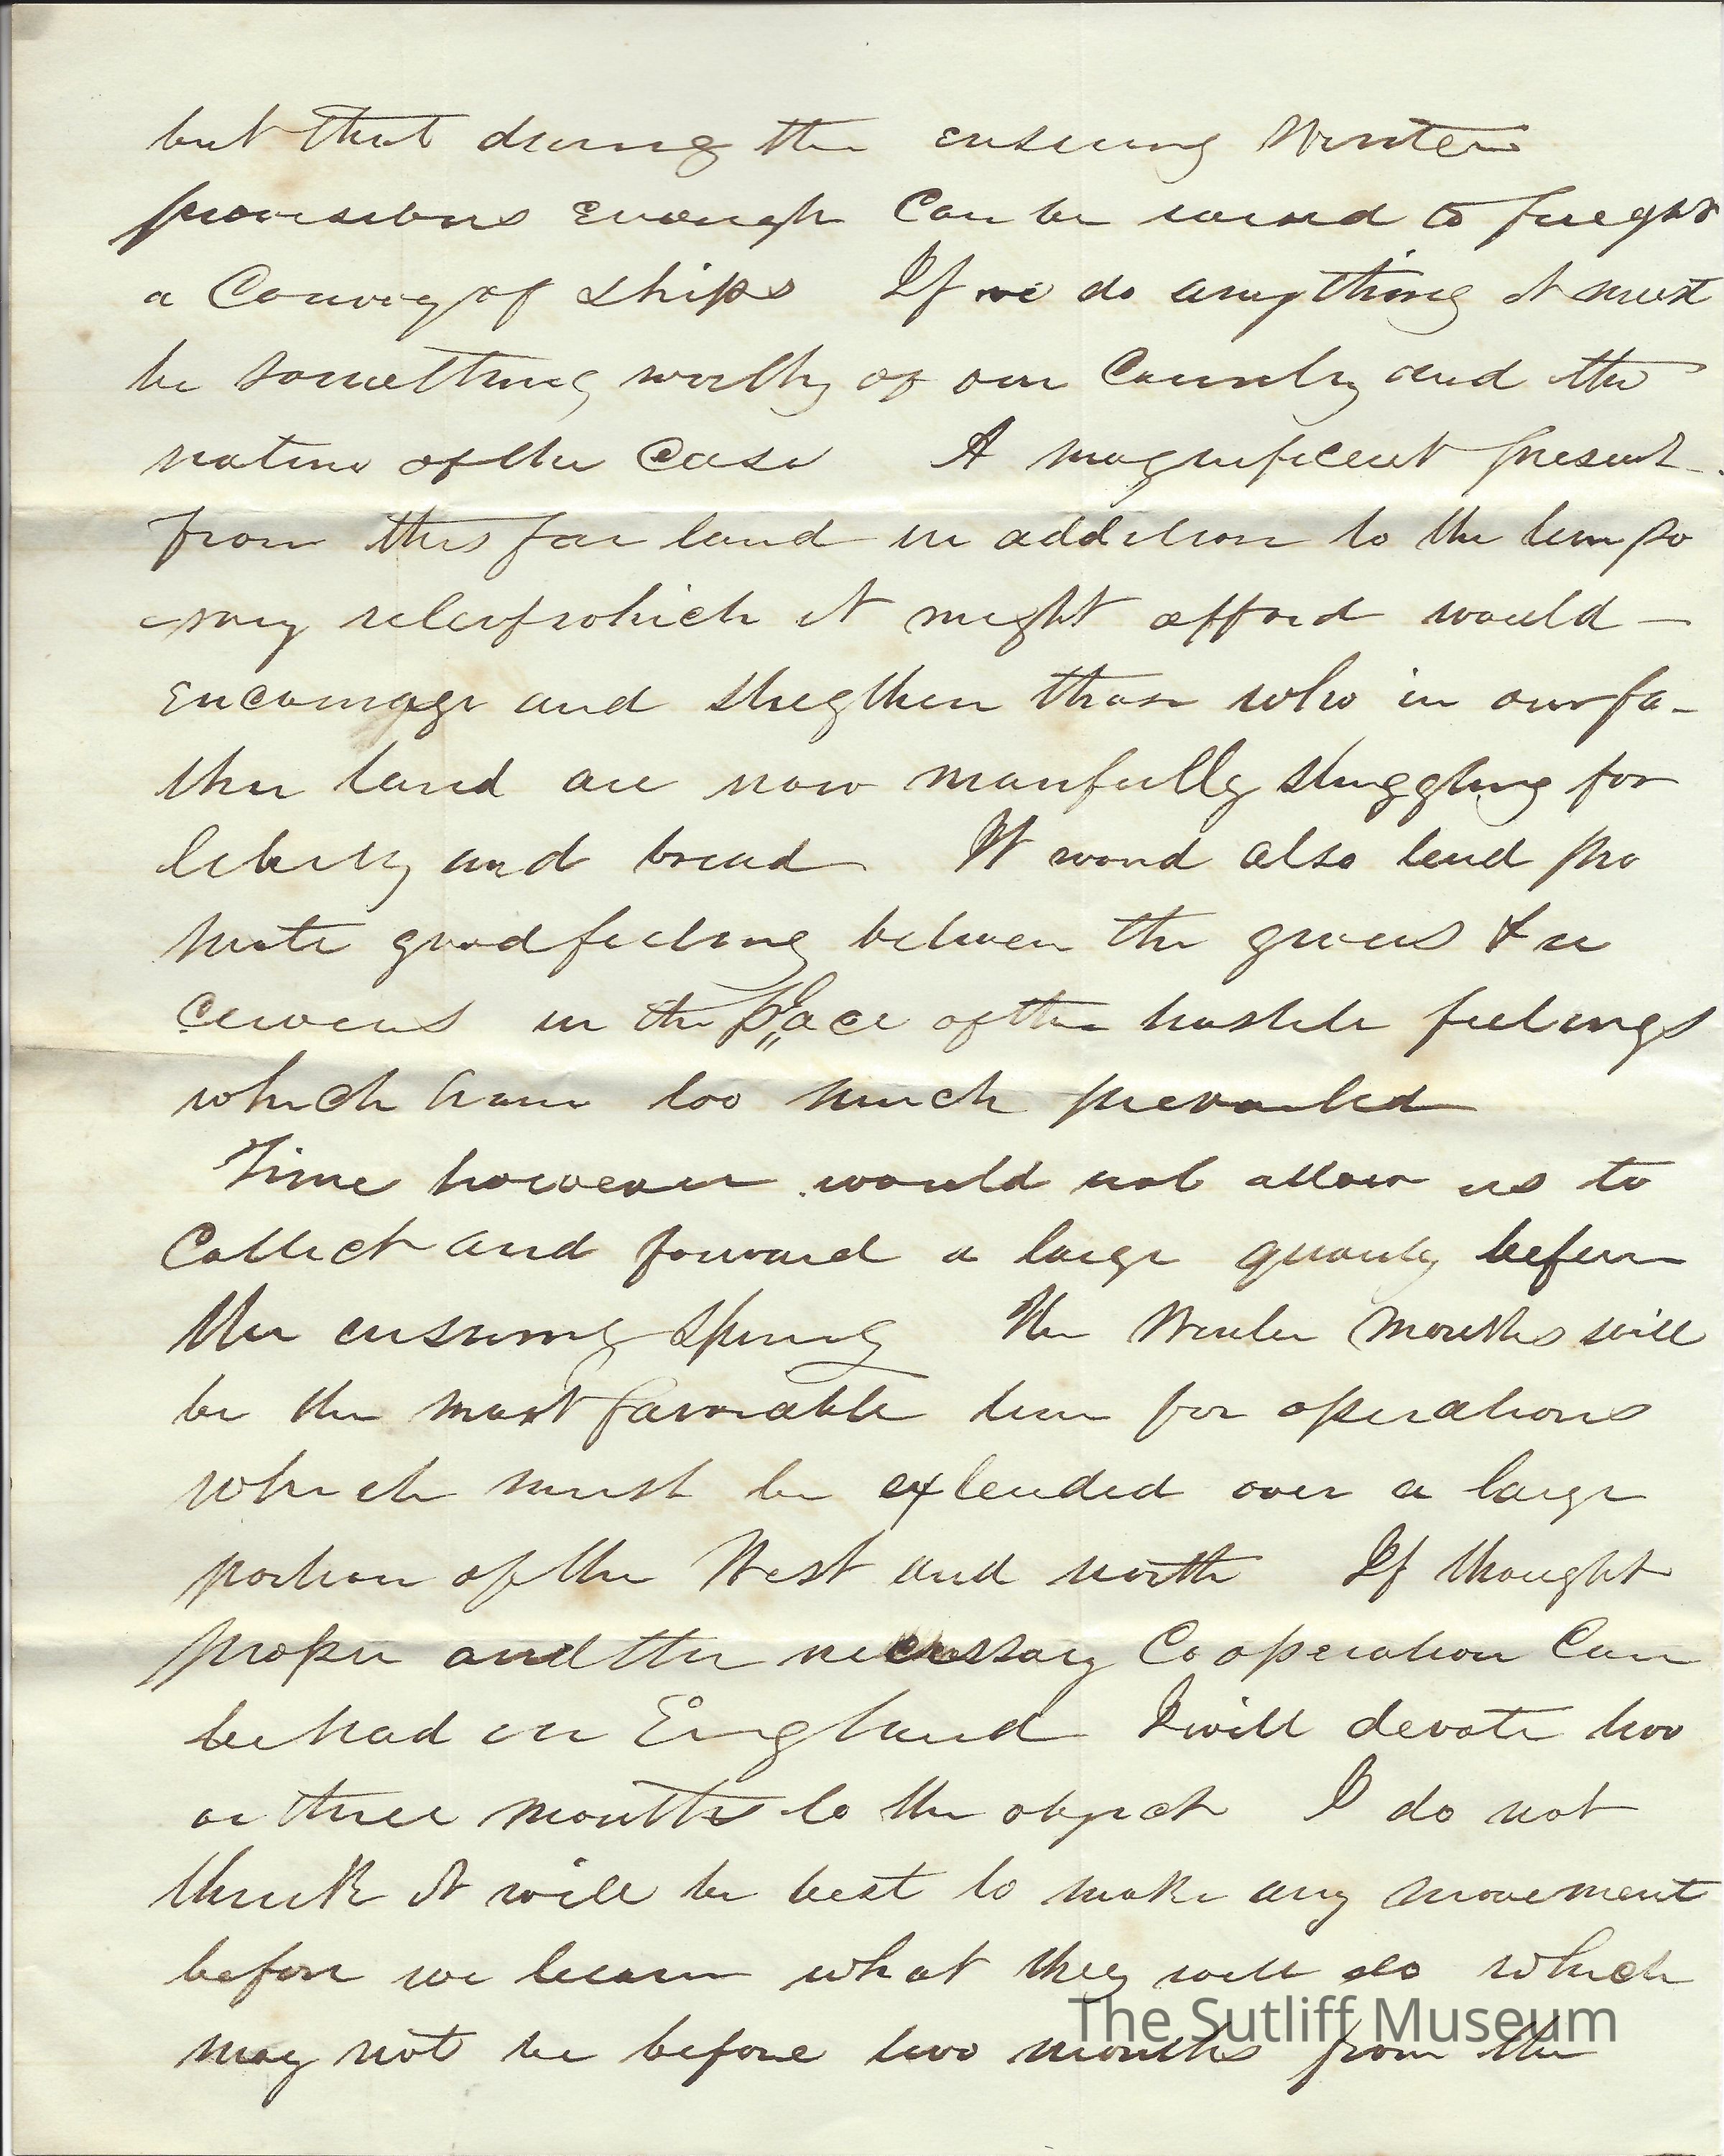 but that during the ensuing Winter
provisions enough can be raised to freight
a Convoy of ships If we do anything it must
be something worthy of our Country and the
nature of the case A magnificent present
from this far land in addition to the tempo
rary releif which it might afford would —
encourage and stregthen those who in our fa-
ther land are now manfully struggling for
liberty and bread It would also tend pro
mote good feeling between the givers & re
ceivers in the place of the hostile feelings
which have too much prevailed
Time however would not allow us to
Collect and forward a large quantity before
the ensuing Spring The Winter months will
be the most favorable time for operations
which must be extended over a large
portion of the West and north If thought
proper and the necessary Cooperation Can
be had in England I will devote two
or three months to the object I do not
think it will be best to make any movement
before we learn what they will do which
may not be before two months from the
The Sutliff Museum